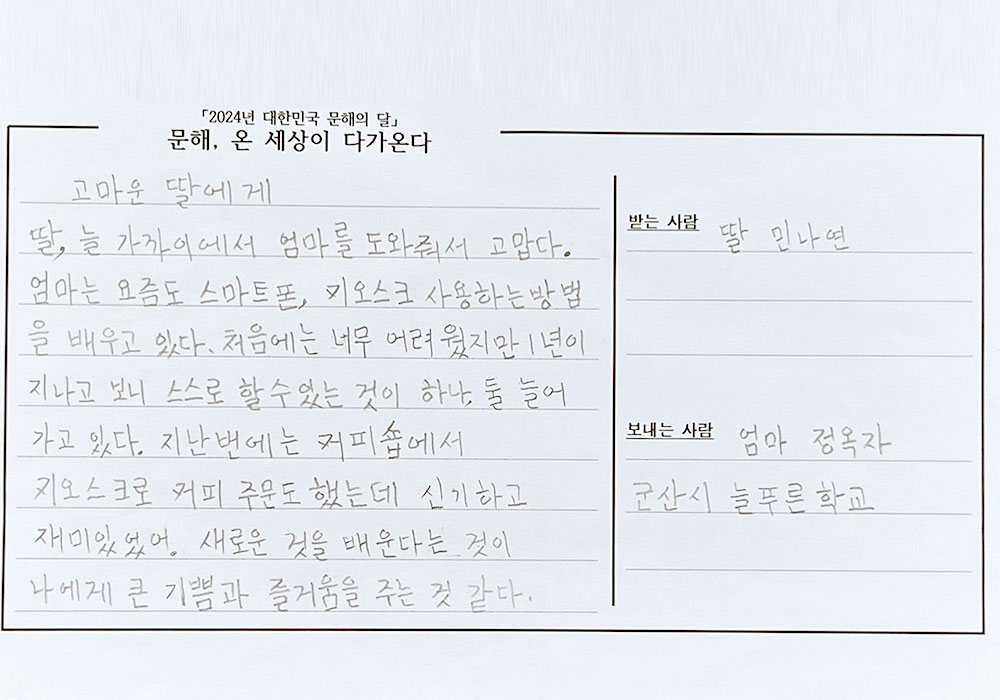 「2024년 대한민국 문해의 달」
문해, 온 세상이 다가온다
고마운 딸에게
딸, 늘 가까이에서 엄마를 도와줘서 고맙다.
엄마는 요즘도 스마트폰, 키오스크 사용하는방법
을 배우고 있다. 처음에는 너무 어려웠지만 1년이
지나고 보니 스스로 할수있는 것이 하나, 둘 늘어
가고 있다. 지난번에는 커피숍에서
키오스크로 커피 주문도 했는데 신기하고
재미있었어. 새로운 것을 배운다는 것이
나에게 큰 기쁨과 즐거움을 주는 것 같다.
받는 사람 딸 민나연
보내는 사람 엄마 정옥자
군산시 늘푸른학교